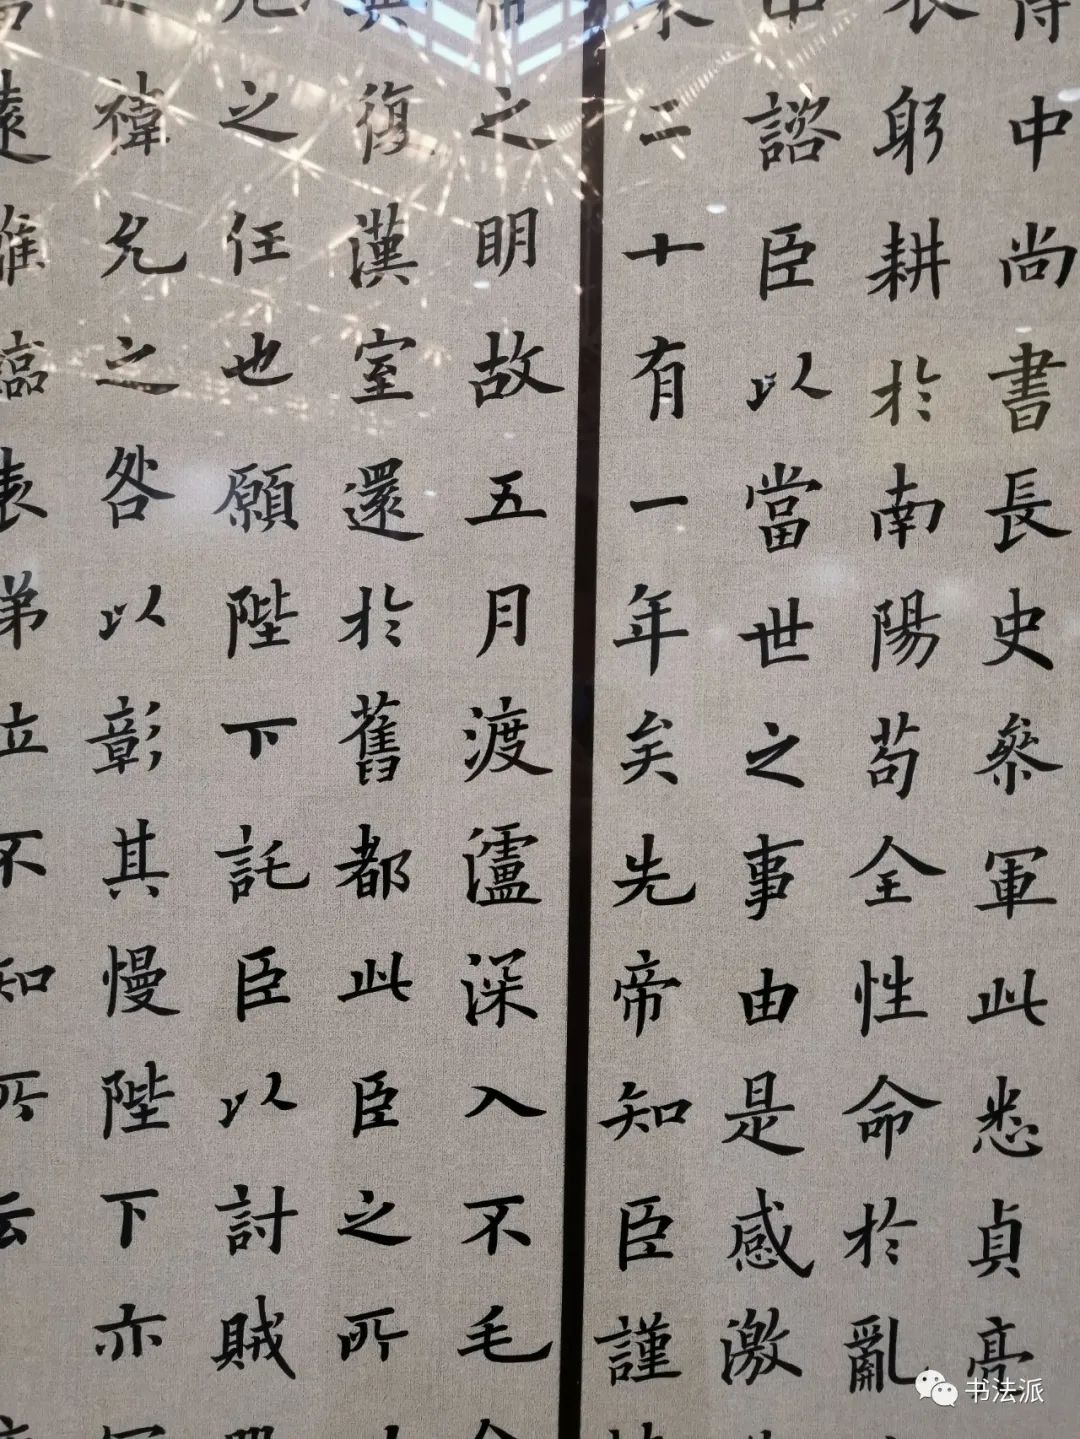 侍中尚書長史參軍此悉貞亮
衣躬耕於南陽苟全性命於亂
中諮臣以當世之事由是感激
來二十有一年矣先帝知臣謹
帝之明故五月渡瀘深入不毛
興復漢室還於舊都此臣之所
允之任也願陛下託臣以討賊
禕允之咎以彰其慢陛下亦
遠離臨表涕泣不知所云
书法派